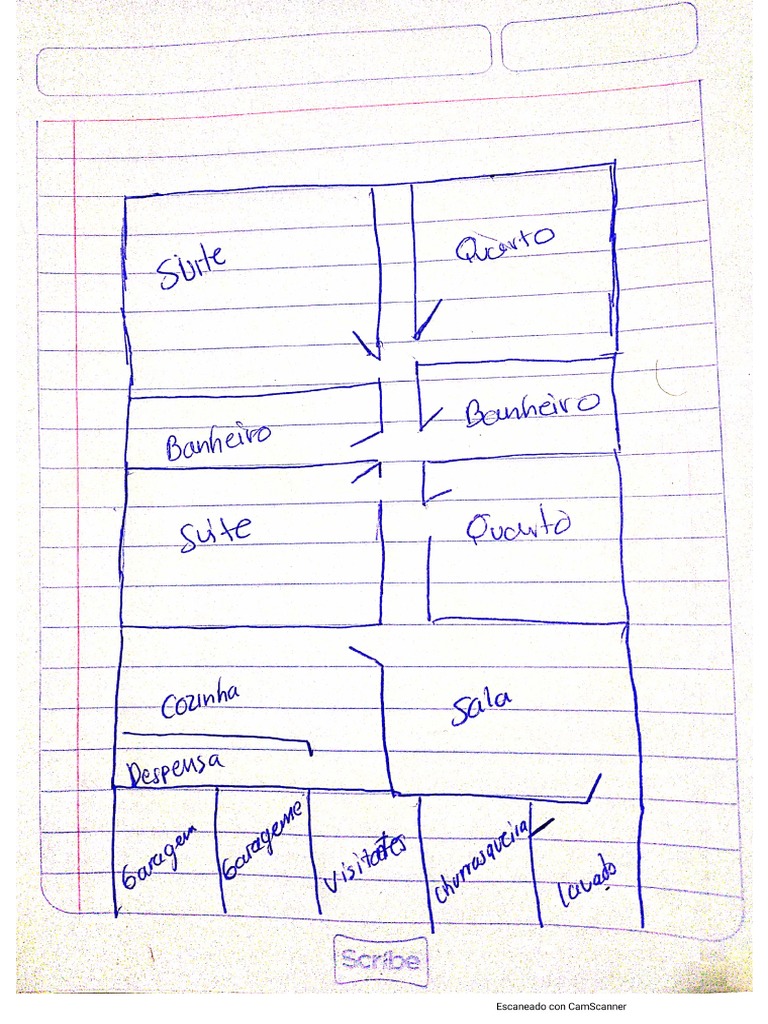 Suite
Quarto
Banheiro
Banheiro
Suite
Quarto
Cozinha
Sala
Despensa
Garagem
Garageme
Visitates
churrasqueira
lavado
Scribe
Escaneado con CamScanner